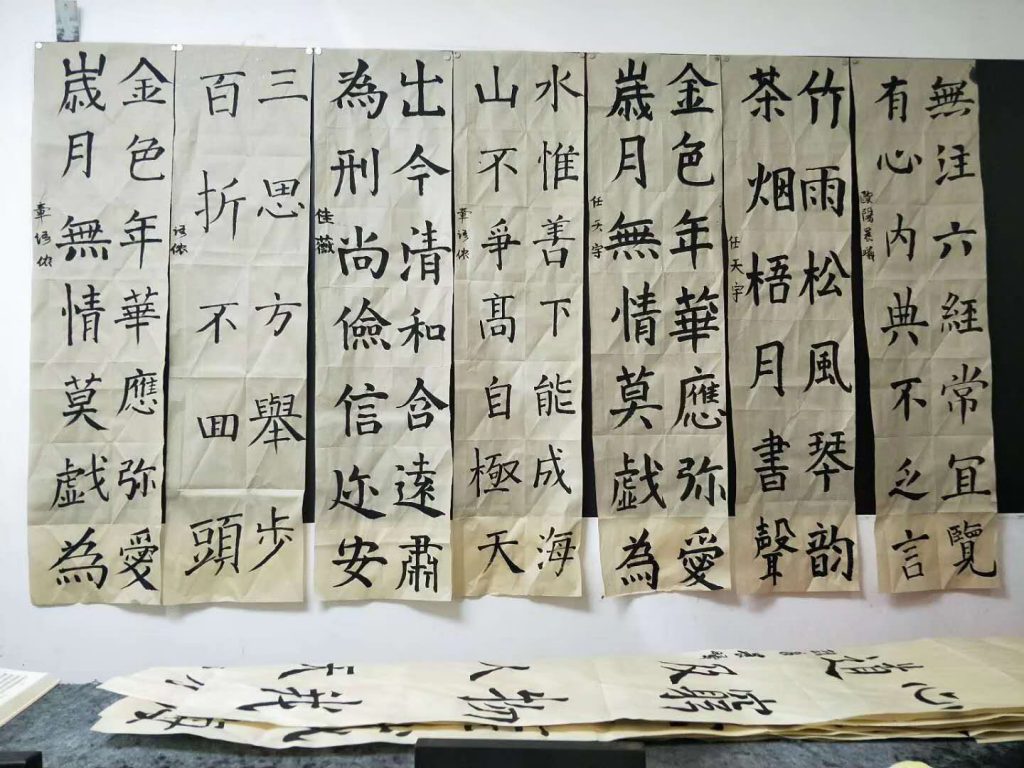 無注六經常宜覽
有心内典不乏言
竹雨松風琴韵
茶烟梧月書聲
任天宇
金色年華應弥愛
歲月無情莫戲為
任天宇
水惟善下能成海
山不爭髙自極天
章语侬
出今清和含遠肅
為刑尚儉信迩安
佳薇
三思方舉步
百折不回頭
语侬
金色年華應弥愛
歲月無情莫戲為
章语侬